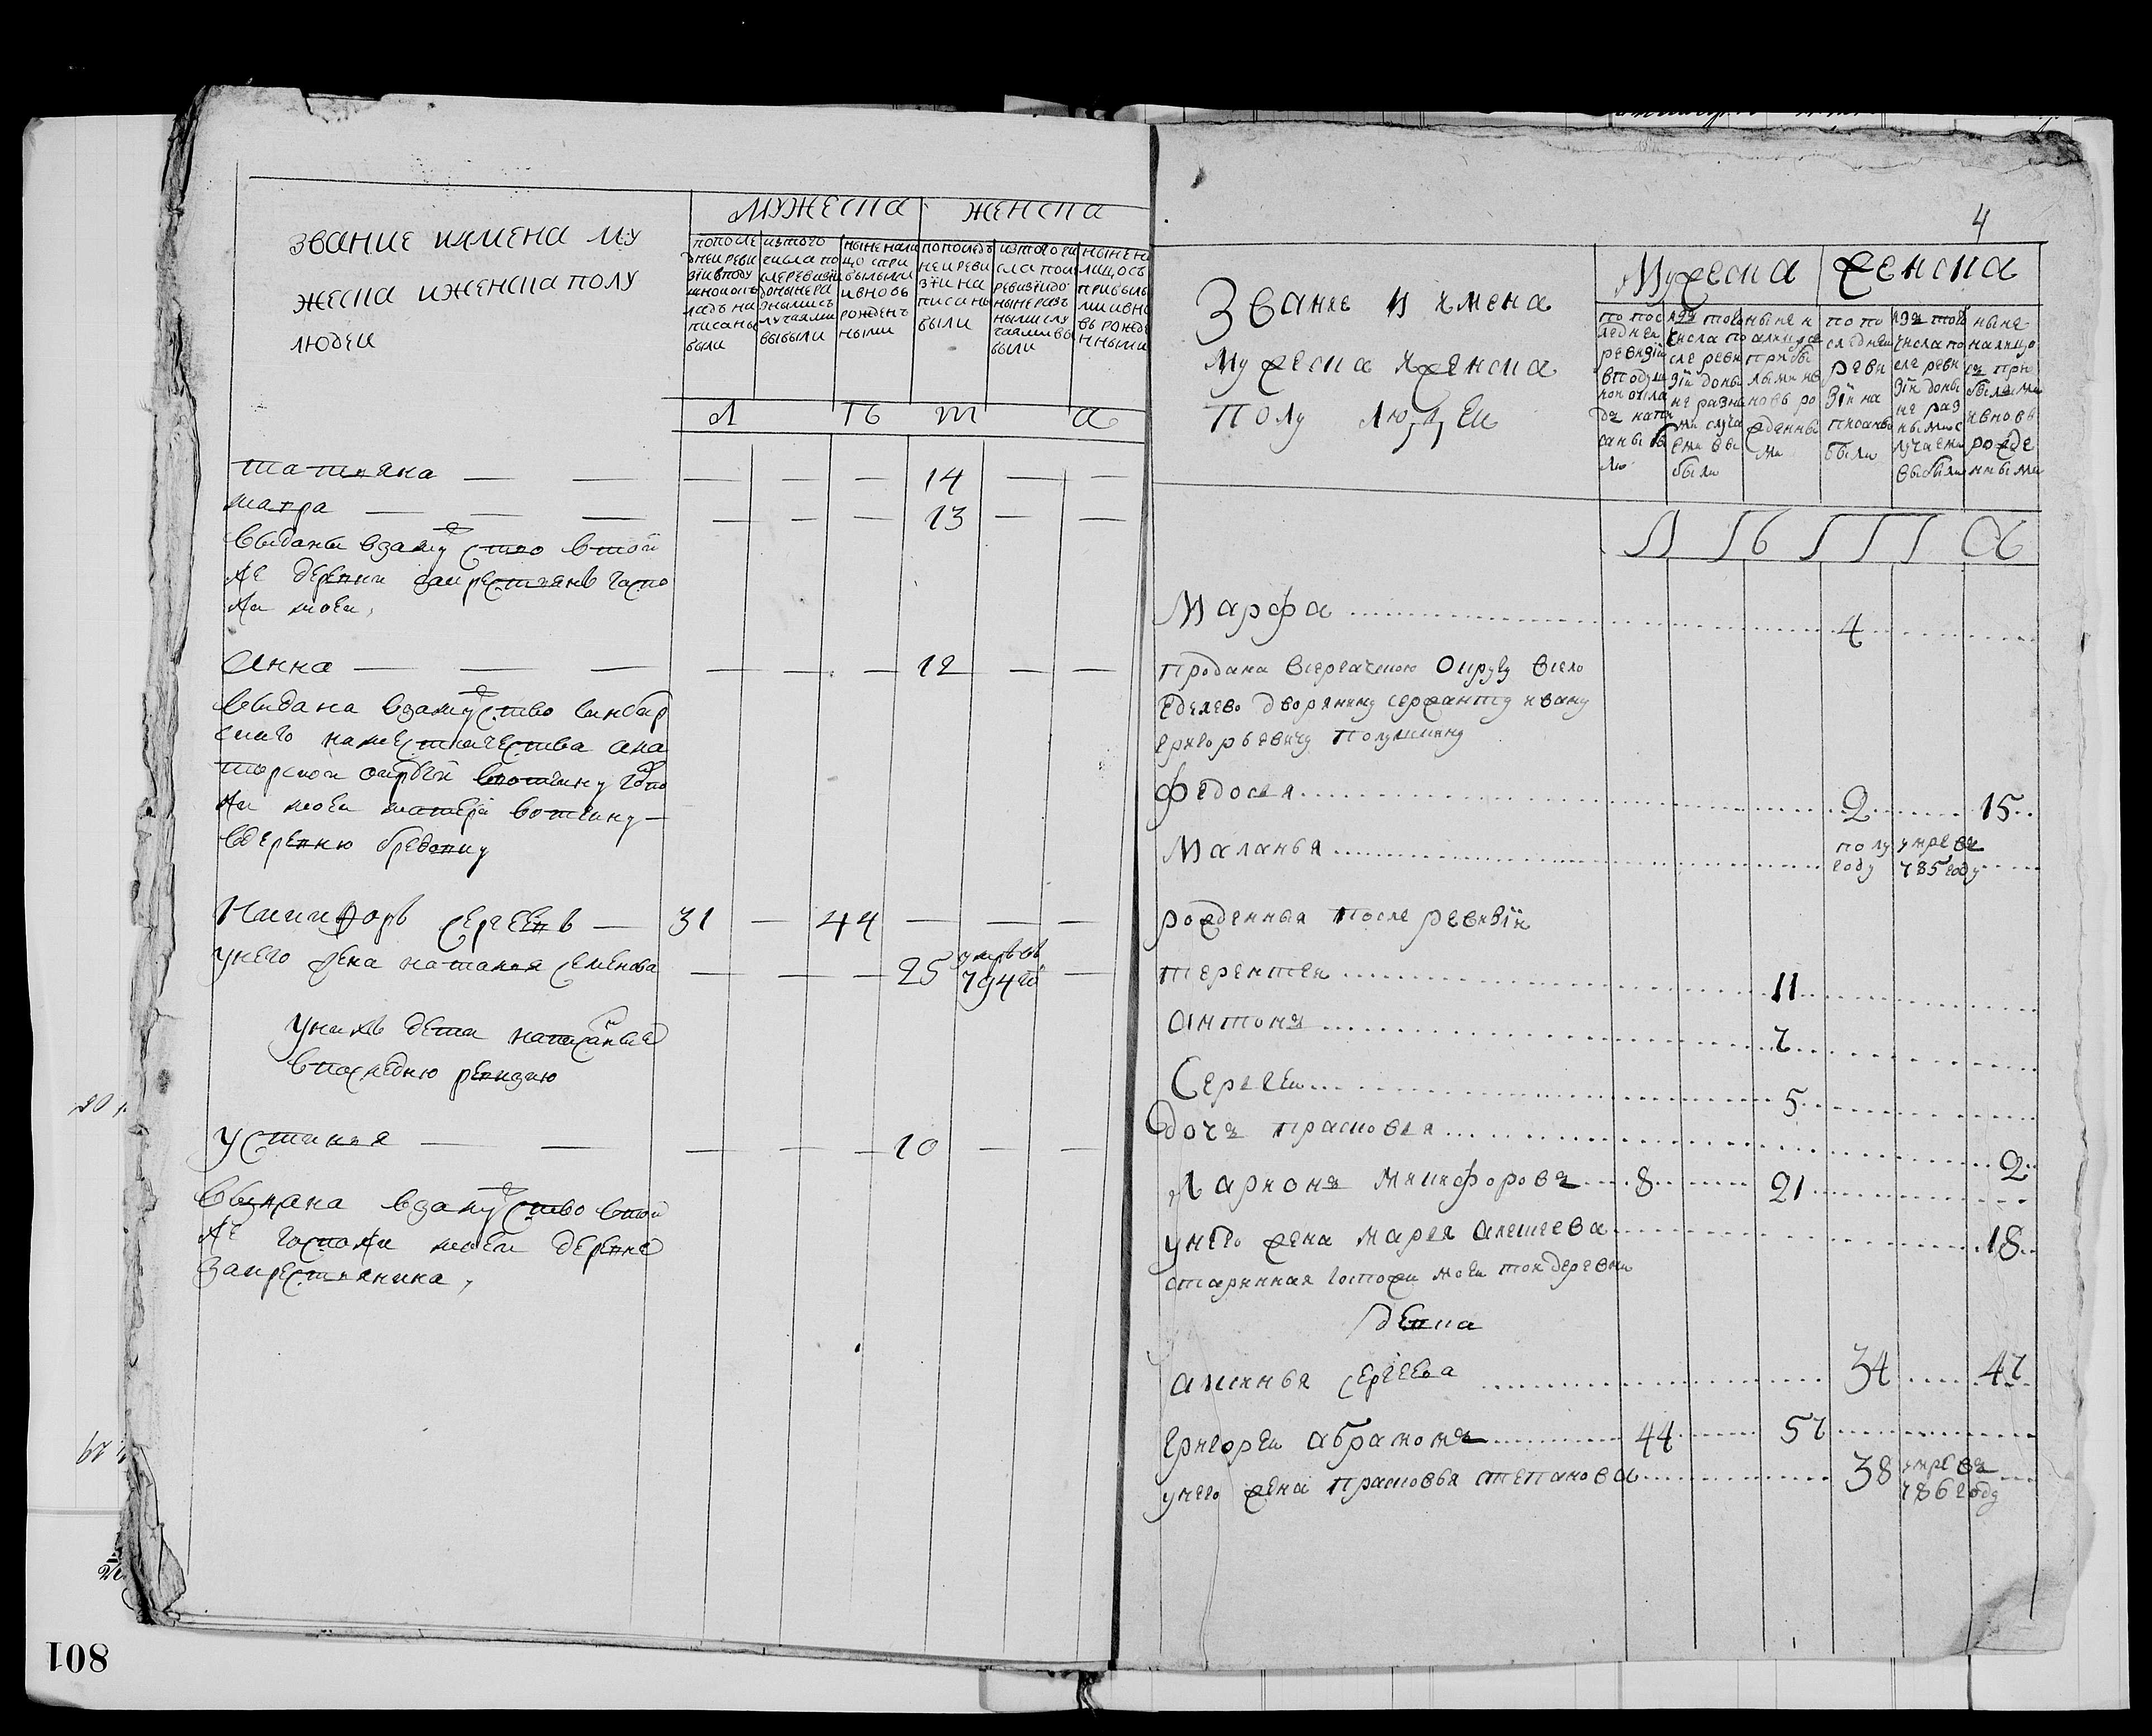 ЗВАНИЕ ИМЕНА МУ
ЖЕСКА ИЖЕНСКА ПОЛУ
ЛЮДЕИ
МУЖЕСКА ЖЕНСКА
попосле
днеи реви
зіи вподу
шнои ок
ладъ на
писаны
были
изтого
числа по
слеревизіи
донынера
знымисъ
лучаями
выбыли
ныне нали
цо спри
былыми
ивновь
рожденъ
ными
попоследъ
неи реви
зіи на
писаны
были
изтого чи
сла посл
ревизіидо
ныне разъ
ными слу
чаями вы
были
ныне на
лицосъ
прибылы
ми ивно
вь рожде
нными
Л Ть т а
татьяна — — — — — 14 — —
макра — — — — — — 13 — —
выданы взамужство втои
же деревни закрестьянъ госпо
жи моеи,
Анна — — — — — — 12 — —
выдана взамужство синбир
скаго наместничества
вотчину госпо
жи моеи матери вотчину —
вдеревню
Никифоръ сергеевъ — 31 — 44 — — —
унего жена наталья семенова — — — 25 умръ въ 794 го —
унихъ дети написанные
впоследнюю ревизию
устинья — — — — — 10 — —
Выдана взамужство втои
же госпожи моеи деревне
закрестьянина,
4
Звание и имена
Мужеска иженска
полу людеи
Мужеска женска
по пос
леднеи
ревизіи
вподуш
ном окла
дъ напи
саны бы
ли
изъ того
числа по
сле реви
зіи доны
не разны
ми случа
еми вы
были
ныне н
алицо с
прибы
лыми ив
новь ро
жденны
ми
по по
следнеи
реви
зіи на
писаны
были
изъ того
числа по
сле реви
зіи доны
не раз
ными с
лучаеми
выбыли
ныне
налицо
съ при
былыми
ивновь
рожде
нными
Л Ть т а
Марфа 4
продана всергачскою округу всело
еделево дворянину сержанту ивану
григорьевичу
федосья 2 15
Маланья полу году умре въ 785 году
рожденныя после ревизіи
терентеи 11
антонъ 7
Сергеи 5
дочь прасковья 2
Ларионъ Никифоровъ 8 21
унего жена марья алексеева 18
старинная госпожи моеи тои деревни
девка
аксинья сергеева 34 47
григореи абрамовъ 44 57
унего жена прасковья степанова 38 умре въ 786 году
801